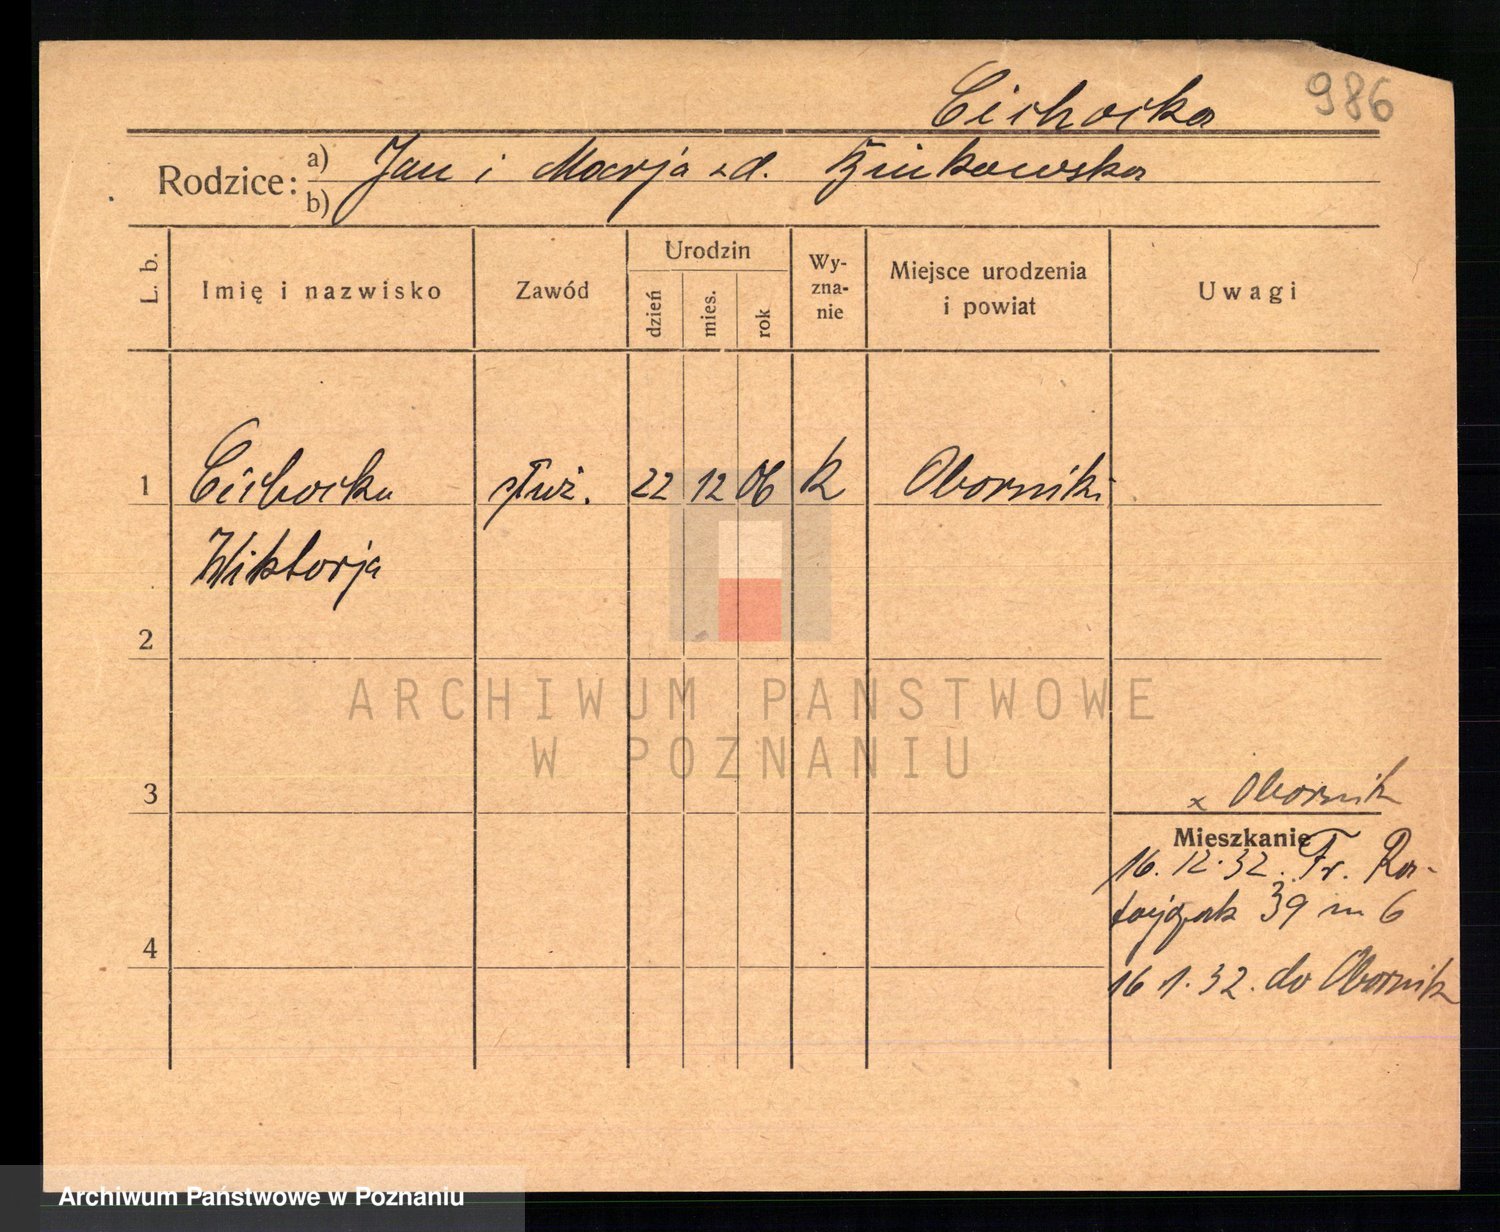 Cichocka
986
Rodzice: a) Jan i Marja z d.
b)
L. b.
Imię i nazwisko
Zawód
Urodzin
dzień
mies.
rok
Wy-
zna-
nie
Miejsce urodzenia
i powiat
Uwagi
1 Cichocka służ. 22 12 06 k Oborniki
Wiktorja
2
ARCHIWUM PAŃSTWOWE
W POZNANIU
3
x Obornik
Mieszkanie
16. 12. 32. Fr. Ra-
tajczak 39 m 6
4
16 1. 32. do Obornik
Archiwum Państwowe w Poznaniu